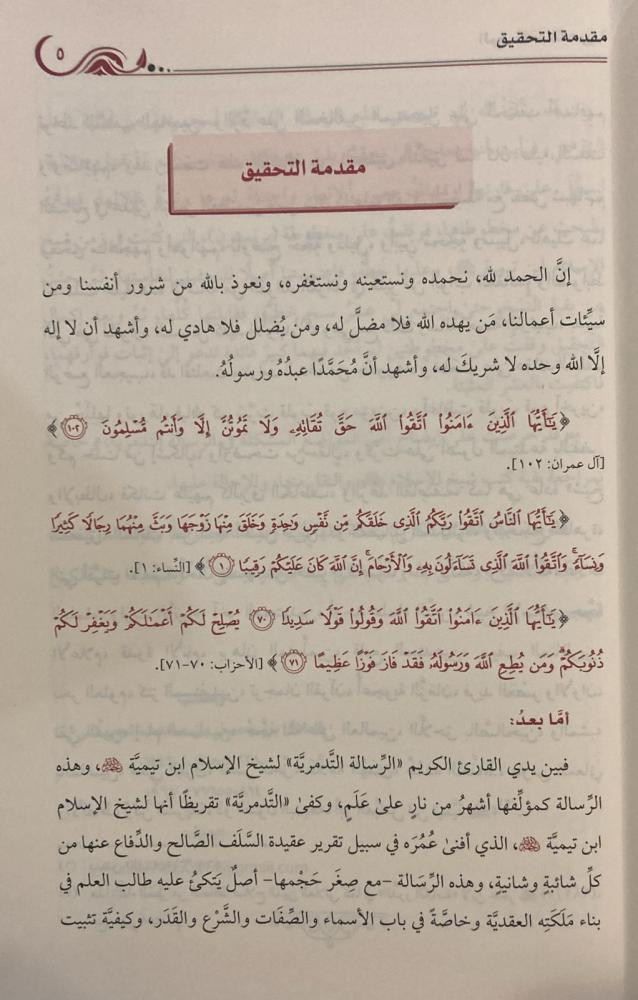 مقدمة التحقيق
٥
مقدمة التحقيق
إنَّ الحمد لله، نحمده ونستعينه ونستغفره، ونعوذ بالله من شرور أنفسنا ومن
سيِّئات أعمالنا، مَن يهده الله فلا مضلَّ له، ومن يُضلل فلا هادي له، وأشهد أن لا إله
إلَّا الله وحده لا شريكَ له، وأشهد أنَّ مُحَمَّدًا عبدُهُ ورسولُهُ.
﴿يَٰٓأَيُّهَا ٱلَّذِينَ ءَامَنُوا۟ ٱتَّقُوا۟ ٱللَّهَ حَقَّ تُقَاتِهِۦ وَلَا تَمُوتُنَّ إِلَّا وَأَنتُم مُّسْلِمُونَ ١٠٢﴾
[آل عمران: ١٠٢].
﴿يَٰٓأَيُّهَا ٱلنَّاسُ ٱتَّقُوا۟ رَبَّكُمُ ٱلَّذِى خَلَقَكُم مِّن نَّفْسٍ وَٰحِدَةٍ وَخَلَقَ مِنْهَا زَوْجَهَا وَبَثَّ مِنْهُمَا رِجَالًا كَثِيرًا
وَنِسَآءً ۚ وَٱتَّقُوا۟ ٱللَّهَ ٱلَّذِى تَسَآءَلُونَ بِهِۦ وَٱلْأَرْحَامَ ۚ إِنَّ ٱللَّهَ كَانَ عَلَيْكُمْ رَقِيبًا ١﴾ [النِّساء: ١].
﴿يَٰٓأَيُّهَا ٱلَّذِينَ ءَامَنُوا۟ ٱتَّقُوا۟ ٱللَّهَ وَقُولُوا۟ قَوْلًا سَدِيدًا ٧٠ يُصْلِحْ لَكُمْ أَعْمَٰلَكُمْ وَيَغْفِرْ لَكُمْ
ذُنُوبَكُمْ ۗ وَمَن يُطِعِ ٱللَّهَ وَرَسُولَهُۥ فَقَدْ فَازَ فَوْزًا عَظِيمًا ٧١﴾ [الأحزاب: ٧٠-٧١].
أمَّا بعدُ:
فبين يدي القارئ الكريم «الرِّسالة التَّدمريَّة» لشيخ الإسلام ابن تيميَّة رحمه الله، وهذه
الرِّسالة كمؤلِّفها أشهرُ من نارٍ علىٰ عَلَمٍ، وكفىٰ «التَّدمريَّة» تقريظًا أنها لشيخ الإسلام
ابن تيميَّة رحمه الله، الذي أفنىٰ عُمُرَه في سبيل تقرير عقيدة السَّلَف الصَّالح والدِّفاع عنها من
كلِّ شائبةٍ وشانيةٍ، وهذه الرِّسالة -مع صِغَر حَجْمها- أصلٌ يَتكئُ عليه طالب العلم في
بناء مَلَكَتِه العقديَّة وخاصَّةً في باب الأسماء والصِّفَات والشَّرْع والقَدَر، وكيفيَّة تثبيت